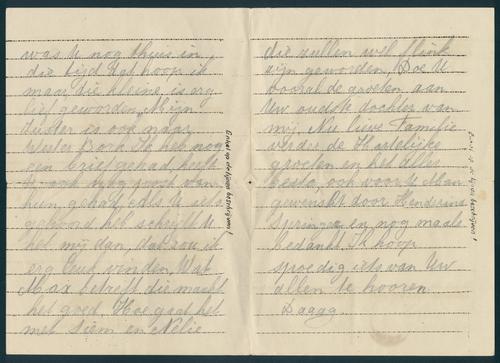 was U nog thuis in,
die tijd dat hoop ik
maar, die kleine, is erg
lief geworden, Mijn
zuster is ook naar
Westerbork. Ik heb nog
een brief gehad, heeft
U ook nog post van
hun gehad, als U iets
gehoord het schrijft U
het mij dan, dat zou ik
erg leuk vinden, Wat
Max betreft die maakt
het goed. Hoe gaat het
met Siem en Nelie
Enkel op de lijnen beschrijven!
die zullen wel flink
zijn geworden, Doe U
vooral de groeten, aan
Uw oudste dochter van
mij, Nu lieve Familie
verder de Hartelijke
groeten en het alles
beste, ook voor U Man
gewenscht door Henderina
Springer, en nog maals
bedankt, Ik hoop
spoedig iets van Uw
allen te hooren
Daagg.
Enkel op de lijnen beschrijven!